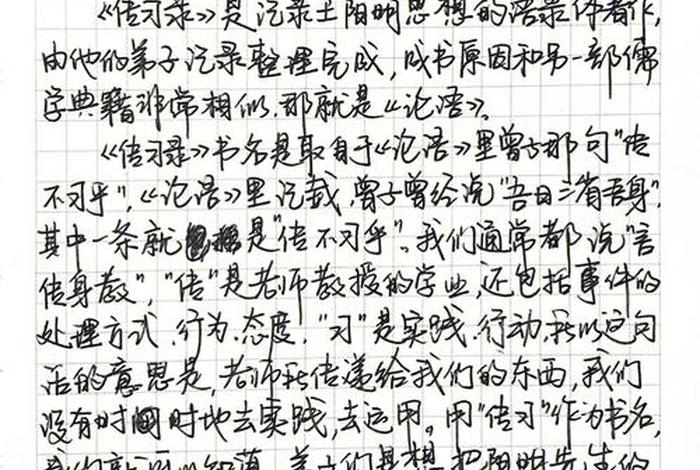 《传习录》是记录王阳明思想的语录体著作,
由他的弟子记录整理完成,成书原因和另一部儒
学典籍非常相似.那就是《论语》。
《传习录》书名是取自于《论语》里曾子那句"传
不习乎",《论语》里记载,曾子曾经说"吾日三省吾身".
其中一条就是"传不习乎"。我们通常都说"言
传身教","传"是老师教授的学业,还包括事件的
处理方式.行为.态度."习"是实践.行动,所以这句
话的意思是,老师所传递给我们的东西,我们
没有时时地去实践,去运用。用"传习"作为书名,
我们就可以知道,弟子们是想把阳明先生的